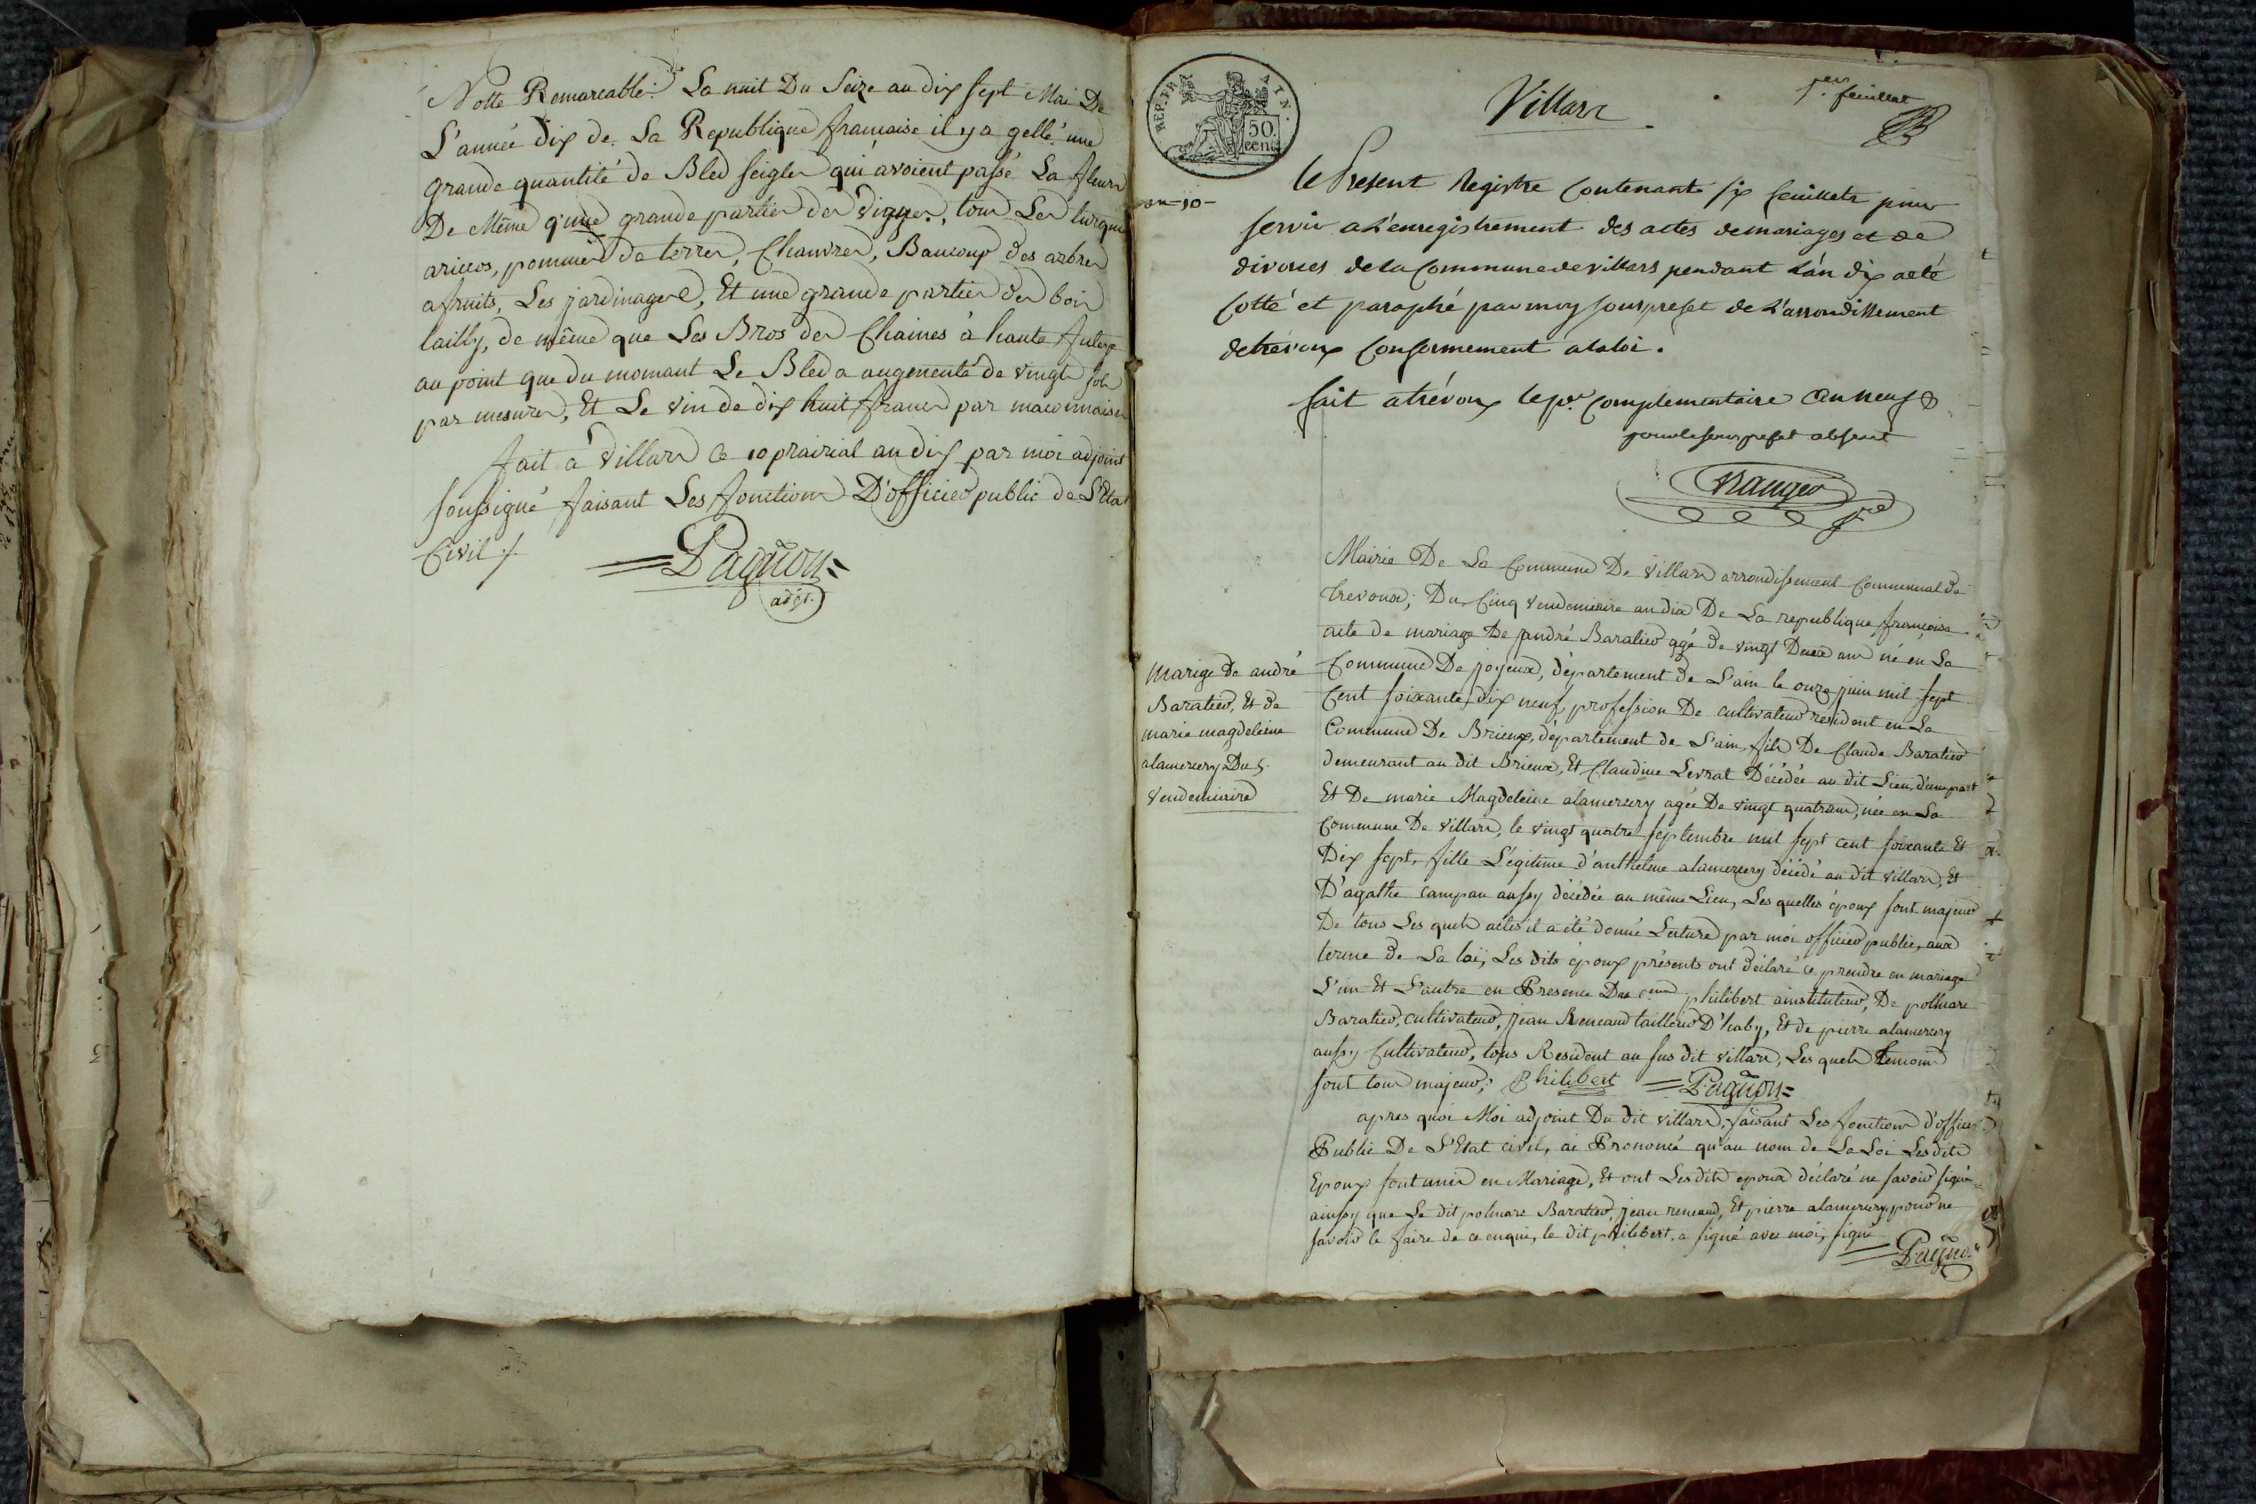 Notte Remarcable. La nuit Du Seize au dix sept Mai De
L'année dix de La Republique francaise il y a gellé une
grande quantité de Bled seigler qui avoient passé La fleur
De Même q'une grande partier der vigner, tous Les turqui
aricos, pommier de terrer, Chanvrer, Baucoup des arbrer
a fruits, Les jardinager, Et une grande partier der boir
tailly, de même que Les Bros der Chaines à haute futey
au point que du momant Le Bled a augementé de vingt sols
par mesurer, Et Le vin de dix huit franc par maconnaise
fait à villars Ce 10 prairial an dix par moi adjoint
soussigné faisant Les fonctions D'officier public de L'Etat
Civil
Pagnon
adjt.
REP. FRA
AIN.
50.
cent.
an-10-
Villars
1er feuillet
Le Present Registre Contenant six feuillets pour
servir a L'enregistrement des actes de mariages et de
divorces de la Commune de villars pendant L'an dix a eté
Cotté et paraphé par moy sous prefet de L'arrondissement
de trévoux Conformement a la loi.
fait a trévoux le pr. complementaire an neuf
pour le sous prefet absent
Marige de andré
Baratier, Et de
marie magdeleine
alamercery Du 5.
Vendemiaire
Mairie De La Commune De villars arrondissement Communal de
trevoux; Du Cinq vendemiaire an dix De La republique françoise
acte de mariage De andré Baratier agé de vingt Deux ans né en La
Commune De joyeux, département de L'ain le onze juin mil sept
Cent soixante dix neuf, profession De cultivateur résident en La
Commune De Brieux, département de L'ain, fils De Claude Baratier
demeurant au dit Brieux, Et Claudine Levrat Décédée au dit Lieu, d'une part
Et De marie Magdeleine alamercery agée De vingt quatre ans, née en La
Commune De villars, le vingt quatre septembre mil sept cent soixante Et
Dix sept, fille Légitime d'anthelme alamercery décédé au dit villars, Et
D'agathe campan aussy décédée au même Lieu, Les quelles époux sont majeur
De tous Les quels actes il a été donné Lecture par moi officier public, aux
terme de La loi, Les dits époux présents ont déclaré ce prendre en mariage
L'un Et L'autre en Presence Des philibert instituteur, De polluare
Baratier, cultivateur, jean Renaud tailleur D'haby, Et de pierre alamercery
aussy Cultivateur, tous Resident au sus dit villars, Les quels temoins
sont tous majeur, Philibert Pagnon
apres quoi Moi adjoint Du dit villars, faisant Les fonctions d'officier
Public De L'Etat civil, ai Prononcé qu'au nom de La Loi Les dits
Epoux sont unis en Mariage, Et ont Les dits epoux déclaré ne savoir signé
ainsy que Le dit polluare Baratier, jean renaud, Et pierre alamercery, pour ne
savoir le faire de ce enquis, le dit philibert a signé avec moi, signé
Pagnon